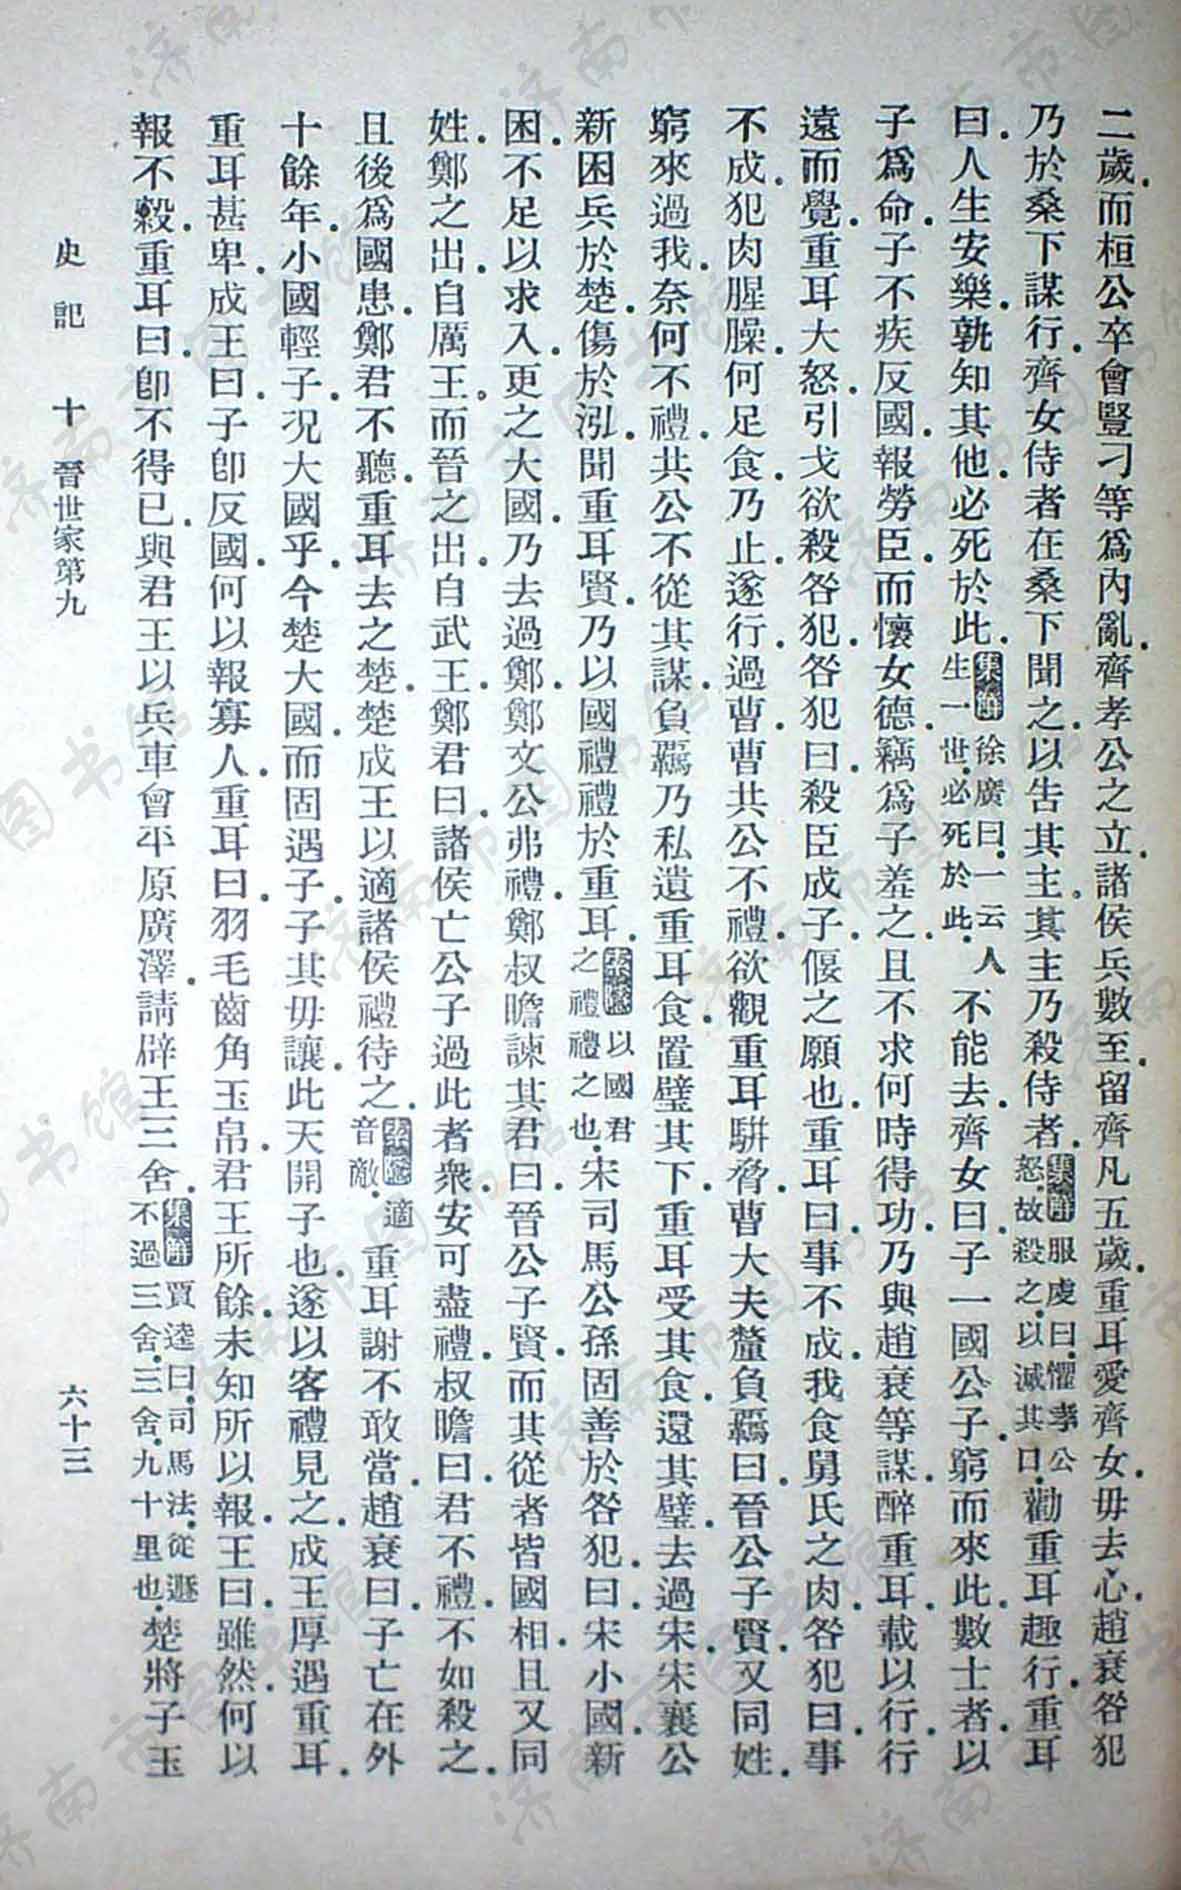 二歲.而桓公卒會豎刁等爲內亂.齊孝公之立.諸侯兵數至.留齊凡五歲.重耳愛齊女.毋去心.趙衰咎犯
乃於桑下謀行.齊女侍者在桑下聞之.以吿其主.其主乃殺侍者.集解服虔曰.懼孝公怒.故殺之.以滅其口.勸重耳趣行.重耳
曰.人生安樂.孰知其他.必死於此.集解徐廣曰.一云人生一世.必死於此.不能去.齊女曰.子一國公子.窮而來此.數士者.以
子爲命.子不疾反國.報勞臣.而懷女德.竊爲子羞之.且不求.何時得功.乃與趙衰等謀.醉重耳.載以行.行
遠而覺.重耳大怒.引戈欲殺咎犯.咎犯曰.殺臣成子.偃之願也.重耳曰.事不成.我食舅氏之肉.咎犯曰.事
不成.犯肉腥臊.何足食.乃止.遂行.過曹.曹共公不禮.欲觀重耳駢脅.曹大夫釐負羈曰.晉公子賢.又同姓.
窮來過我.奈何不禮.共公不從其謀.負羈乃私遺重耳食.置璧其下.重耳受其食.還其璧.去過宋.宋襄公
新困兵於楚.傷於泓.聞重耳賢.乃以國禮禮於重耳.索隱以國君之禮禮之也.宋司馬公孫固善於咎犯.曰.宋小國.新
困.不足以求入.更之大國.乃去.過鄭.鄭文公弗禮.鄭叔瞻諫其君曰.晉公子賢.而其從者皆國相.且又同
姓.鄭之出.自厲王.而晉之出.自武王.鄭君曰.諸侯亡公子過此者衆.安可盡禮.叔瞻曰.君不禮.不如殺之.
且後爲國患.鄭君不聽.重耳去之楚.楚成王以適諸侯禮待之.索隱適音敵.重耳謝不敢當.趙衰曰.子亡在外
十餘年.小國輕子.況大國乎.今楚大國.而固遇子.子其毋讓.此天開子也.遂以客禮見之.成王厚遇重耳.
重耳甚卑.成王曰.子卽反國.何以報寡人.重耳曰.羽毛齒角玉帛.君王所餘.未知所以報.王曰.雖然.何以
報不穀.重耳曰.卽不得已.與君王以兵車會平原廣澤.請辟王三舍.集解賈逵曰.司馬法.從遯不過三舍.三舍.九十里也.楚將子玉
史記 十 晉世家第九 六十三